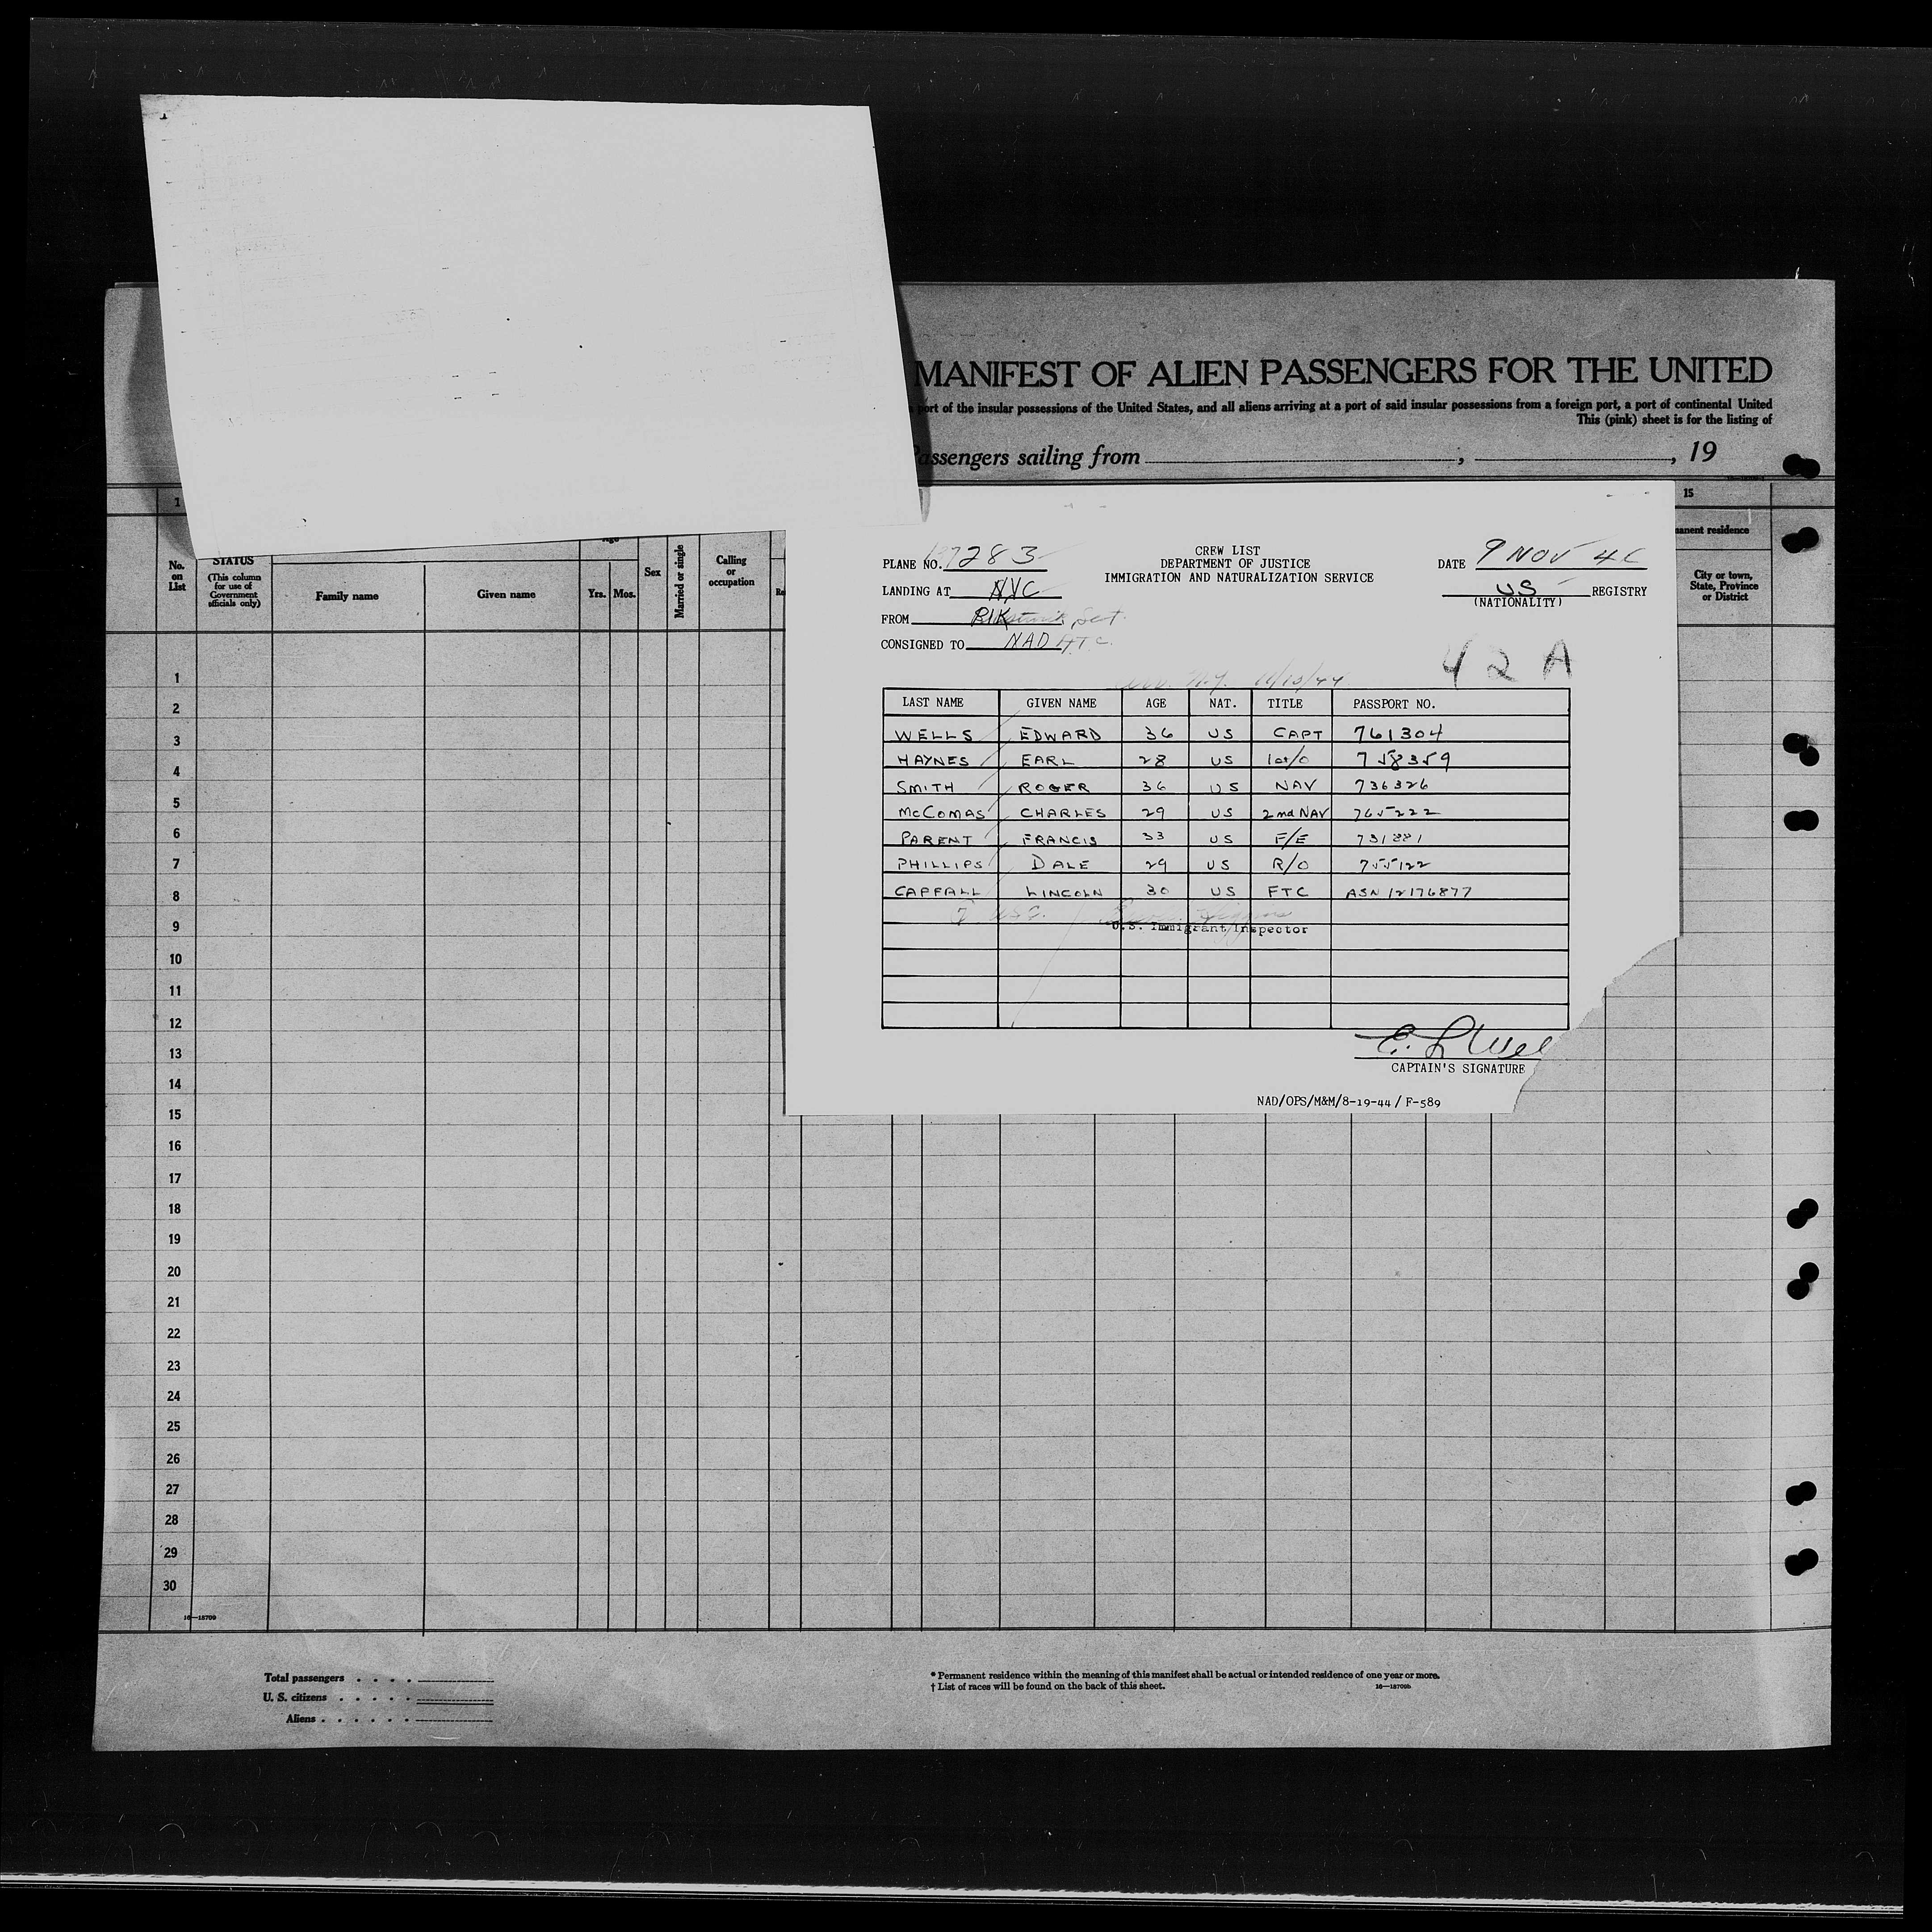 MANIFEST OF ALIEN PASSENGERS FOR THE UNITED
port of the insular possessions of the United States, and all aliens arriving at a port of said insular possessions from a foreign port, a port of continental United
This (pink) sheet is for the listing of
Passengers sailing from , , 19
1
15
No. on List
STATUS
(This column for use of Government officials only)
Family name
Given name
Age
Yrs.
Mos.
Sex
Married or single
Calling or occupation
permanent residence
City or town, State, Province or District
CREW LIST
DEPARTMENT OF JUSTICE
IMMIGRATION AND NATURALIZATION SERVICE
PLANE NO. 7283
DATE 9 NOV 44
LANDING AT NYC
US REGISTRY
(NATIONALITY)
FROM
CONSIGNED TO NAD ATC
42 A
N.Y. 11/10/44
LAST NAME GIVEN NAME AGE NAT. TITLE PASSPORT NO.
WELLS EDWARD 36 US CAPT 761304
HAYNES EARL 28 US 1st/O 758359
SMITH ROGER 36 US NAV 736326
McCOMAS CHARLES 29 US 2nd NAV 765222
PARENT FRANCIS 33 US F/E 731881
PHILLIPS DALE 29 US R/O 755122
CAPFALL LINCOLN 30 US FTC ASN 12176877
7 USC.
U.S. Immigrant Inspector
E. L. Wel
CAPTAIN'S SIGNATURE
NAD/OPS/M&M/8-19-44/ F-589
1
2
3
4
5
6
7
8
9
10
11
12
13
14
15
16
17
18
19
20
21
22
23
24
25
26
27
28
29
30
16—18709
Total passengers . . . .
U. S. citizens . . . . .
Aliens . . . . . .
* Permanent residence within the meaning of this manifest shall be actual or intended residence of one year or more.
† List of races will be found on the back of this sheet.
16—18709b